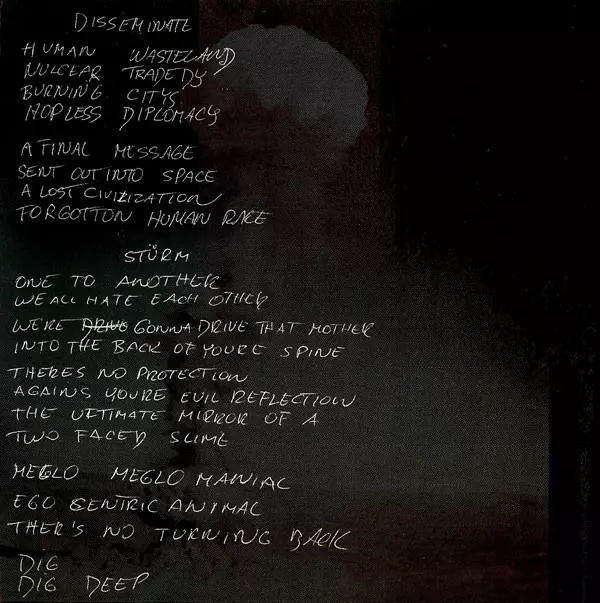 DISSEMINATE
HUMAN WASTELAND
NUCLEAR TRADEDY
BURNING CITYS
HOPLESS DIPLOMACY
A FINAL MESSAGE
SENT OUT INTO SPACE
A LOST CIVILIZATION
FORGOTTON HUMAN RACE
STÜRM
ONE TO ANOTHER
WE ALL HATE EACH OTHER
WERE DRIVE GONNA DRIVE THAT MOTHER
INTO THE BACK OF YOURE SPINE
THERES NO PROTECTION
AGAINS YOURE EVIL REFLECTION
THE ULTIMATE MIRROR OF A
TWO FACED SLIME
MEGLO MEGLO MANIAC
EGO CENTRIC ANYMAL
THER'S NO TURNING BACK
DIG
DIG DEEP